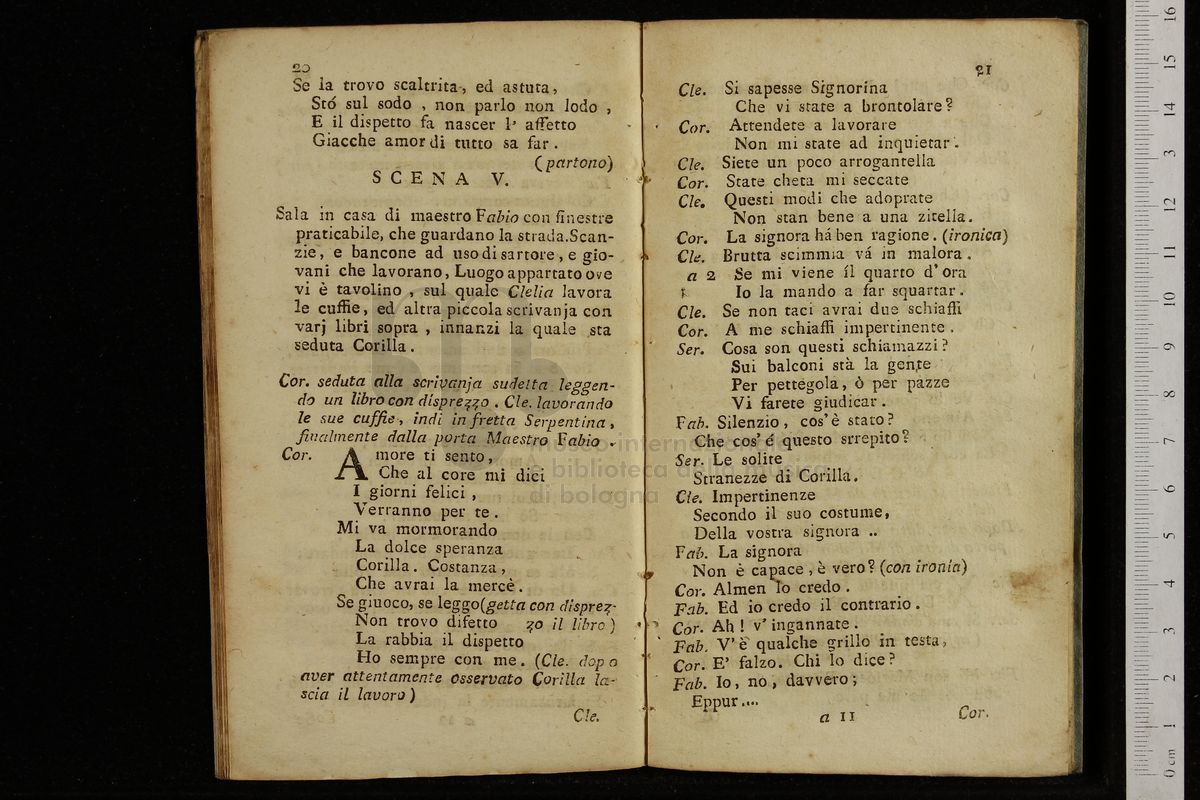 20
Se la trovo scaltrita, ed astuta,
Stó sul sodo , non parlo non lodo ,
E il dispetto fa nascer l' affetto
Giacche amor di tutto sa far .
(partono)
SCENA V.
Sala in casa di maestro Fabio con finestre
praticabile, che guardano la strada.Scan-
zie, e bancone ad uso di sartore, e gio-
vani che lavorano, Luogo appartato ove
vi è tavolino , sul quale Clelia lavora
le cuffie, ed altra piccola scrivanja con
varj libri sopra , innanzi la quale sta
seduta Corilla.
Cor. seduta alla scrivanja sudetta leggen-
do un libro con disprezzo . Cle. lavorando
le sue cuffie, indi in fretta Serpentina,
finalmente dalla porta Maestro Fabio .
Cor. Amore ti sento,
Che al core mi dici
I giorni felici ,
Verranno per te .
Mi va mormorando
La dolce speranza
Corilla. Costanza,
Che avrai la mercè.
Se giuoco, se leggo(getta con disprez-
Non trovo difetto zo il libro)
La rabbia il dispetto
Ho sempre con me. (Cle. dopo
aver attentamente osservato Corilla la-
scia il lavoro)
Cle.
21
Cle. Si sapesse Signorina
Che vi state a brontolare?
Cor. Attendete a lavorare
Non mi state ad inquietar.
Cle. Siete un poco arrogantella
Cor. State cheta mi seccate
Cle. Questi modi che adoprate
Non stan bene a una zitella.
Cor. La signora há ben ragione. (ironica)
Cle. Brutta scimmia vá in malora.
a 2 Se mi viene il quarto d' ora
Io la mando a far squartar.
Cle. Se non taci avrai due schiaffi
Cor. A me schiaffi impertinente.
Ser. Cosa son questi schiamazzi?
Sui balconi stà la gente
Per pettegola, ò per pazze
Vi farete giudicar.
Fab. Silenzio, cos' è stato?
Che cos' é questo srrepito?
Ser. Le solite
Stranezze di Corilla.
Cle. Impertinenze
Secondo il suo costume,
Della vostra signora ..
Fab. La signora
Non è capace , è vero? (con ironia)
Cor. Almen lo credo .
Fab. Ed io credo il contrario.
Cor. Ah! v' ingannate.
Fab. V' è qualche grillo in testa,
Cor. E' falzo. Chi lo dice?
Fab. Io, no, davvero;
Eppur....
a 11
Cor.
museo internazionale
e biblioteca della musica
di bologna